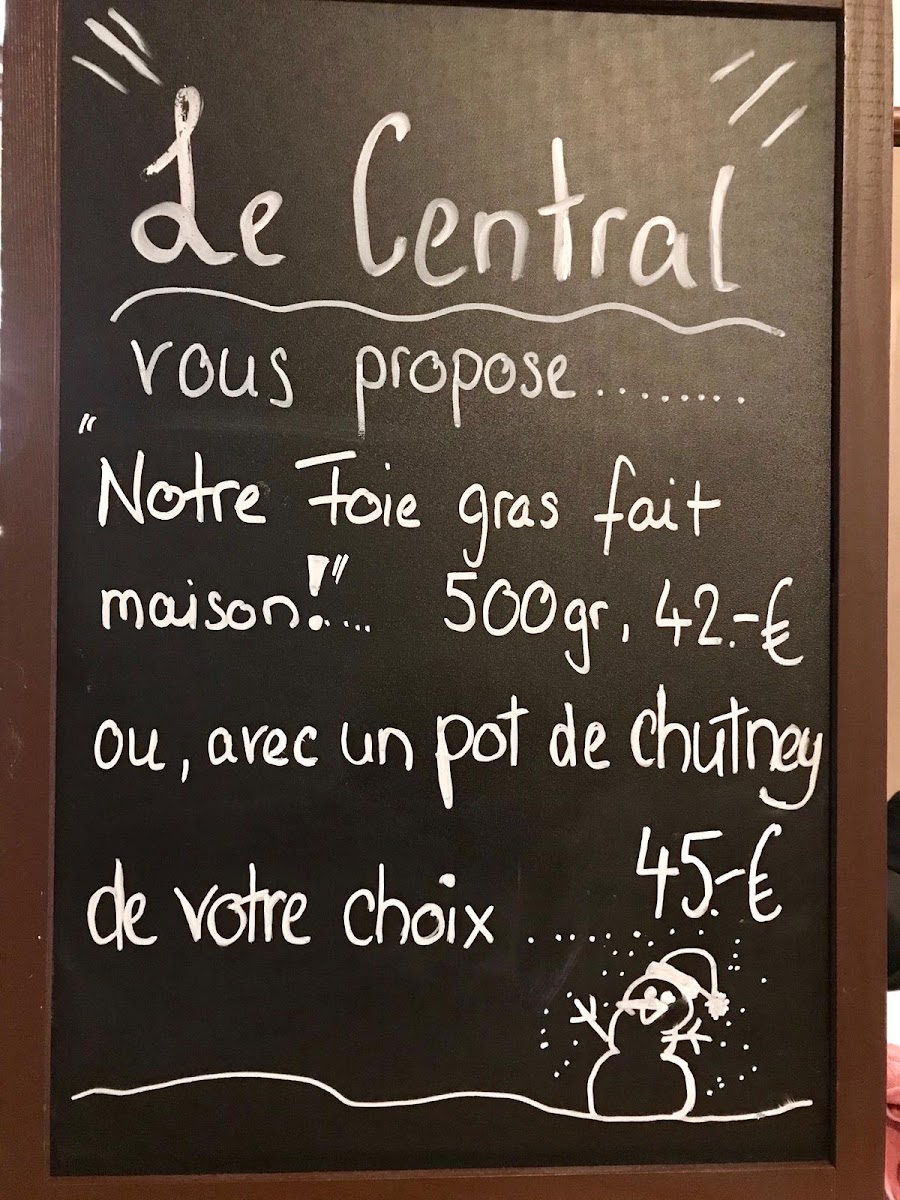 Le Central
vous propose........
"Notre Foie gras fait
maison!".... 500gr, 42.-€
ou, avec un pot de chutney
45.-€
de votre choix ........